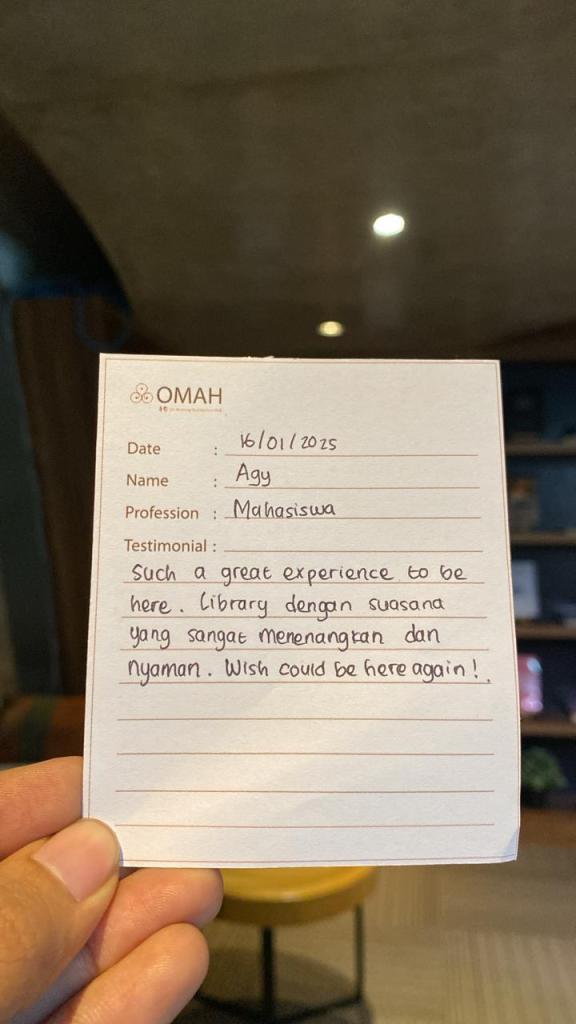 OMAH
Date : 16/01/2025
Name : Agy
Profession : Mahasiswa
Testimonial :
Such a great experience to be
here. Library dengan suasana
yang sangat menenangkan dan
nyaman. Wish could be here again!.